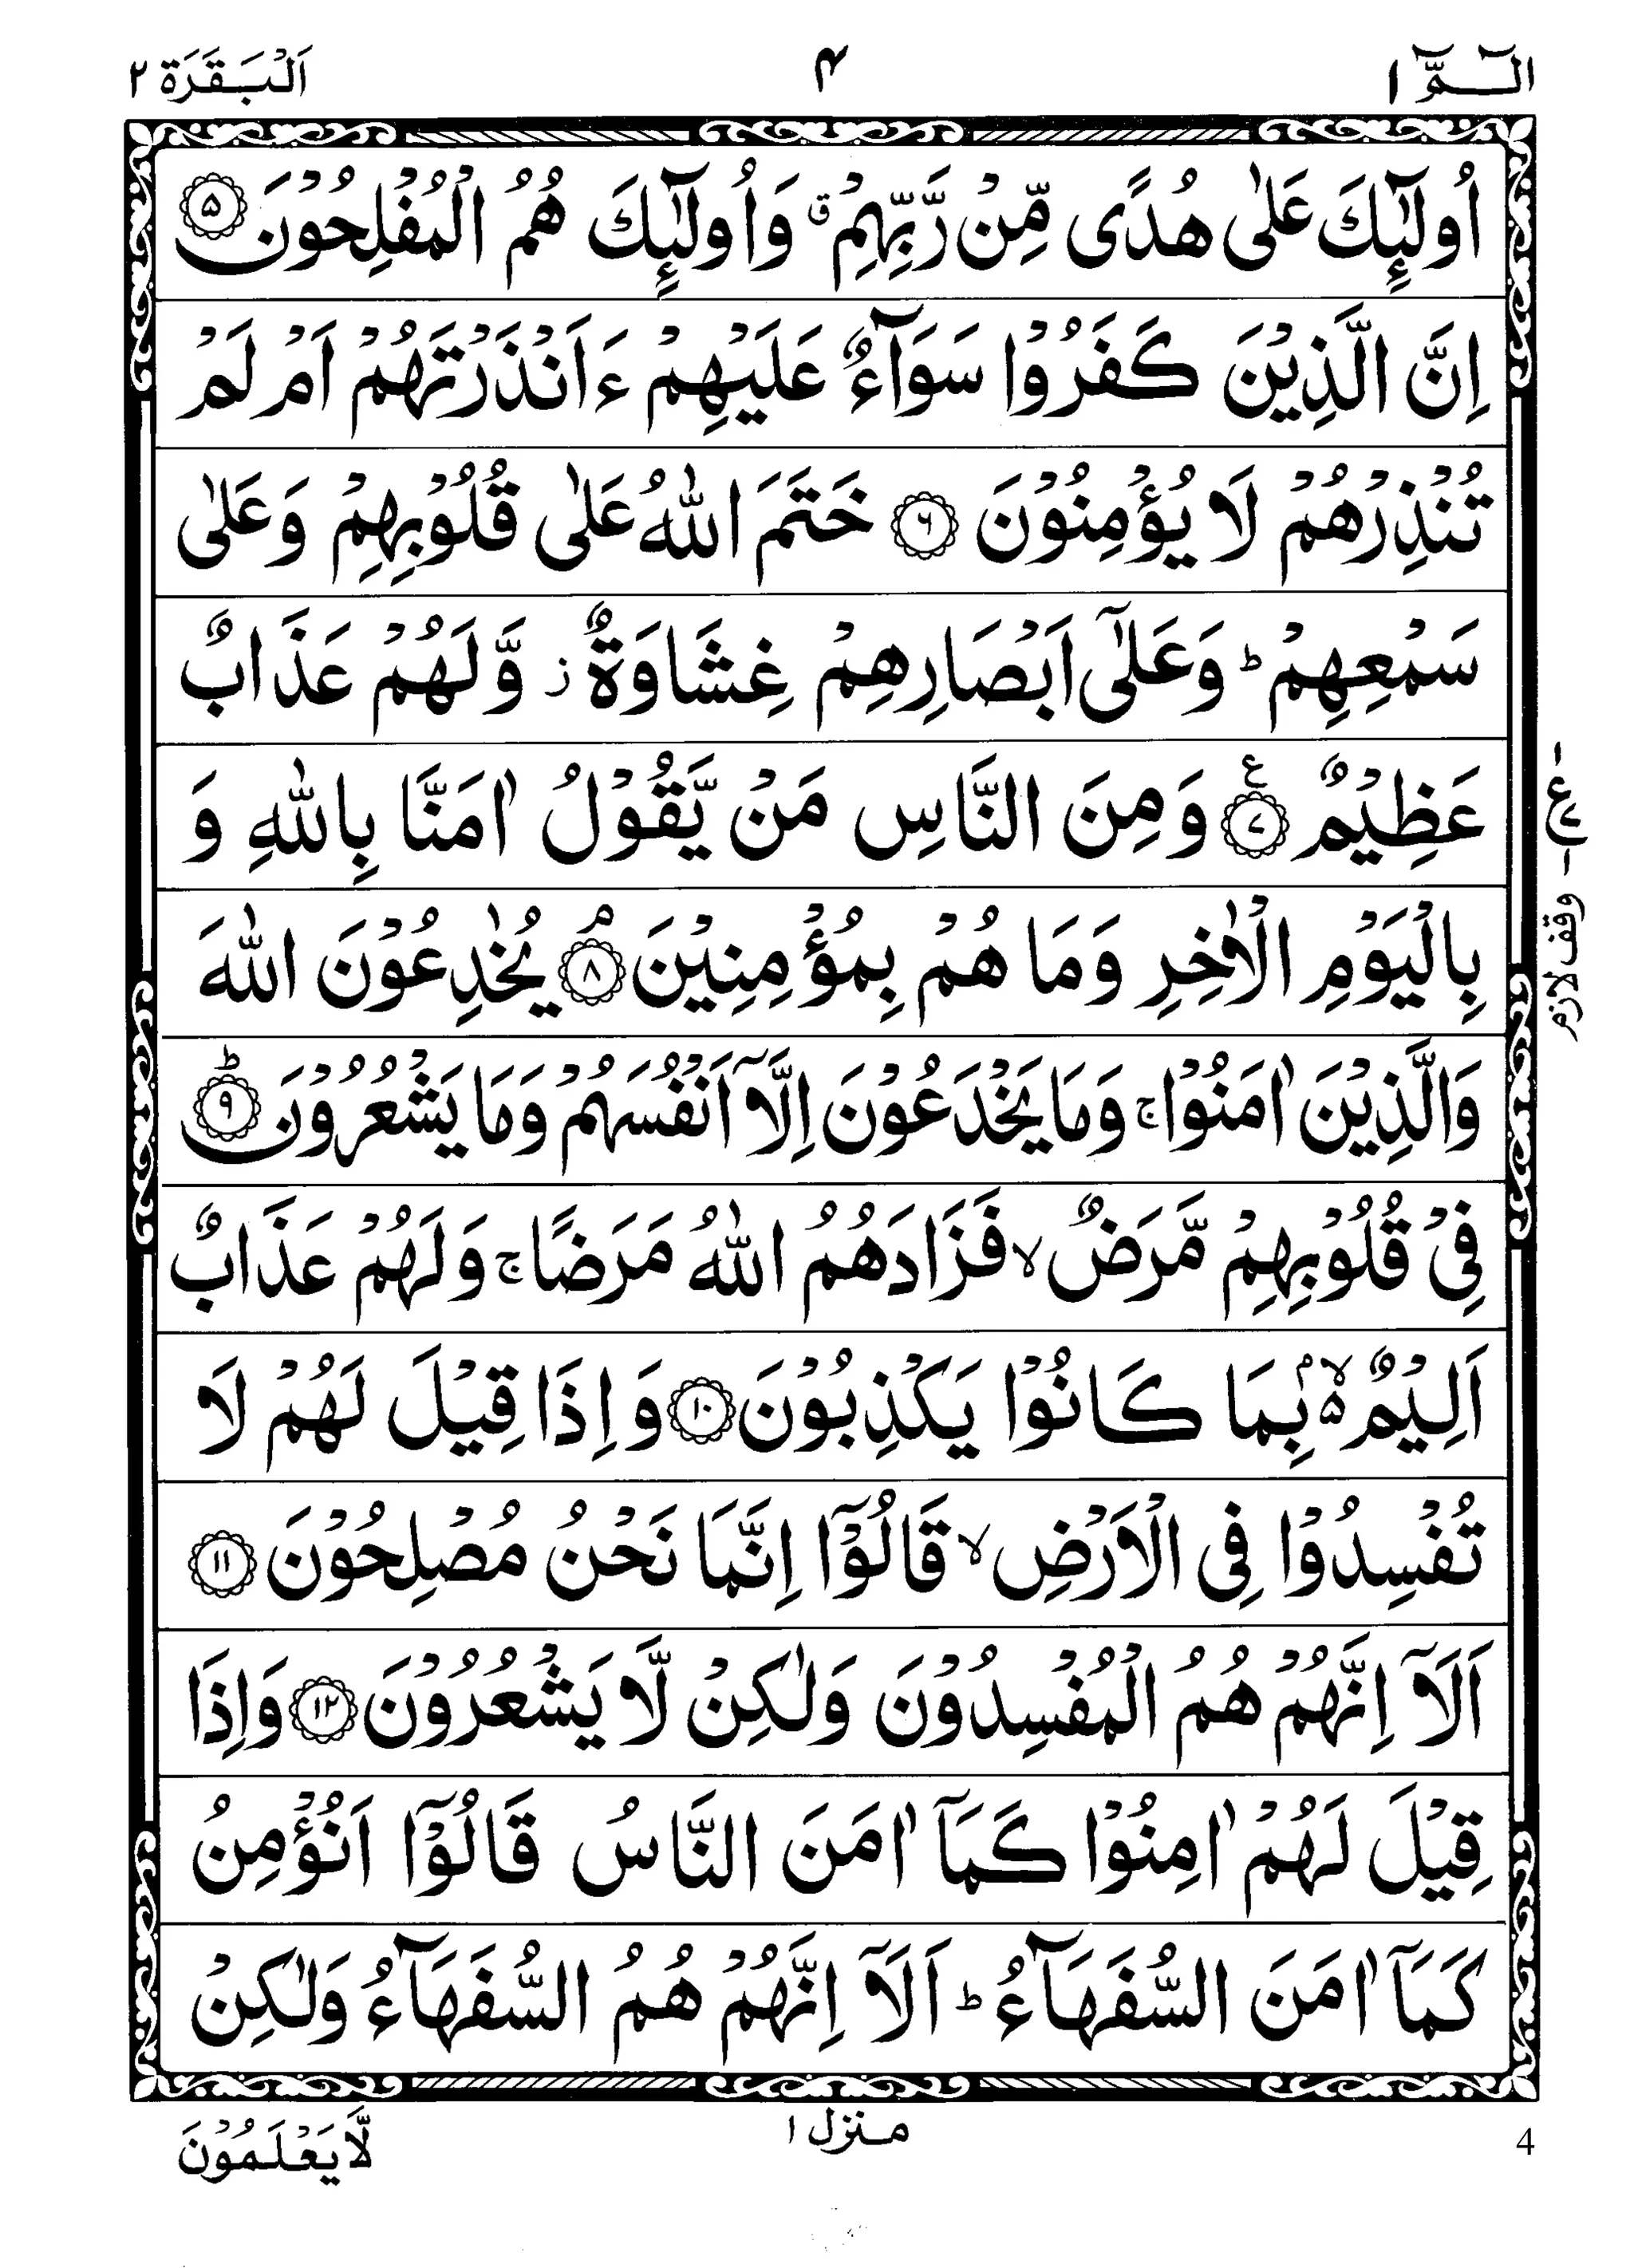 الٓـمّٓ ١
۴
اَلْبَقَرَة ٢
اُولٰٓئِكَ عَلٰى هُدًى مِّنْ رَّبِّهِمْ ۗ وَاُولٰٓئِكَ هُمُ الْمُفْلِحُوْنَ ۵
اِنَّ الَّذِيْنَ كَفَرُوْا سَوَآءٌ عَلَيْهِمْ ءَاَنْذَرْتَهُمْ اَمْ لَمْ
تُنْذِرْهُمْ لَا يُؤْمِنُوْنَ ۶ خَتَمَ اللّٰهُ عَلٰى قُلُوْبِهِمْ وَعَلٰى
سَمْعِهِمْ ؕ وَعَلٰٓى اَبْصَارِهِمْ غِشَاوَةٌ ز وَّلَهُمْ عَذَابٌ
عَظِيْمٌ ۷ ع وَمِنَ النَّاسِ مَنْ يَّقُوْلُ اٰمَنَّا بِاللّٰهِ وَ
ع
بِالْيَوْمِ الْاٰخِرِ وَمَا هُمْ بِمُؤْمِنِيْنَ ۘ ۸ يُخٰدِعُوْنَ اللّٰهَ
وقف لازم
وَالَّذِيْنَ اٰمَنُوْا ۚ وَمَا يَخْدَعُوْنَ اِلَّآ اَنْفُسَهُمْ وَمَا يَشْعُرُوْنَ ؕ ۹
فِىْ قُلُوْبِهِمْ مَّرَضٌ ۙ فَزَادَهُمُ اللّٰهُ مَرَضًا ۚ وَلَهُمْ عَذَابٌ
اَلِيْمٌ ۙ۵ۢ بِمَا كَانُوْا يَكْذِبُوْنَ ۱۰ وَاِذَا قِيْلَ لَهُمْ لَا
تُفْسِدُوْا فِى الْاَرْضِ ۙ قَالُوْٓا اِنَّمَا نَحْنُ مُصْلِحُوْنَ ۱۱
اَلَآ اِنَّهُمْ هُمُ الْمُفْسِدُوْنَ وَلٰكِنْ لَّا يَشْعُرُوْنَ ۱۲ وَاِذَا
قِيْلَ لَهُمْ اٰمِنُوْا كَمَآ اٰمَنَ النَّاسُ قَالُوْٓا اَنُؤْمِنُ
كَمَآ اٰمَنَ السُّفَهَآءُ ؕ اَلَآ اِنَّهُمْ هُمُ السُّفَهَآءُ وَلٰكِنْ
4
منزل ١
لَّا يَعْلَمُوْنَ